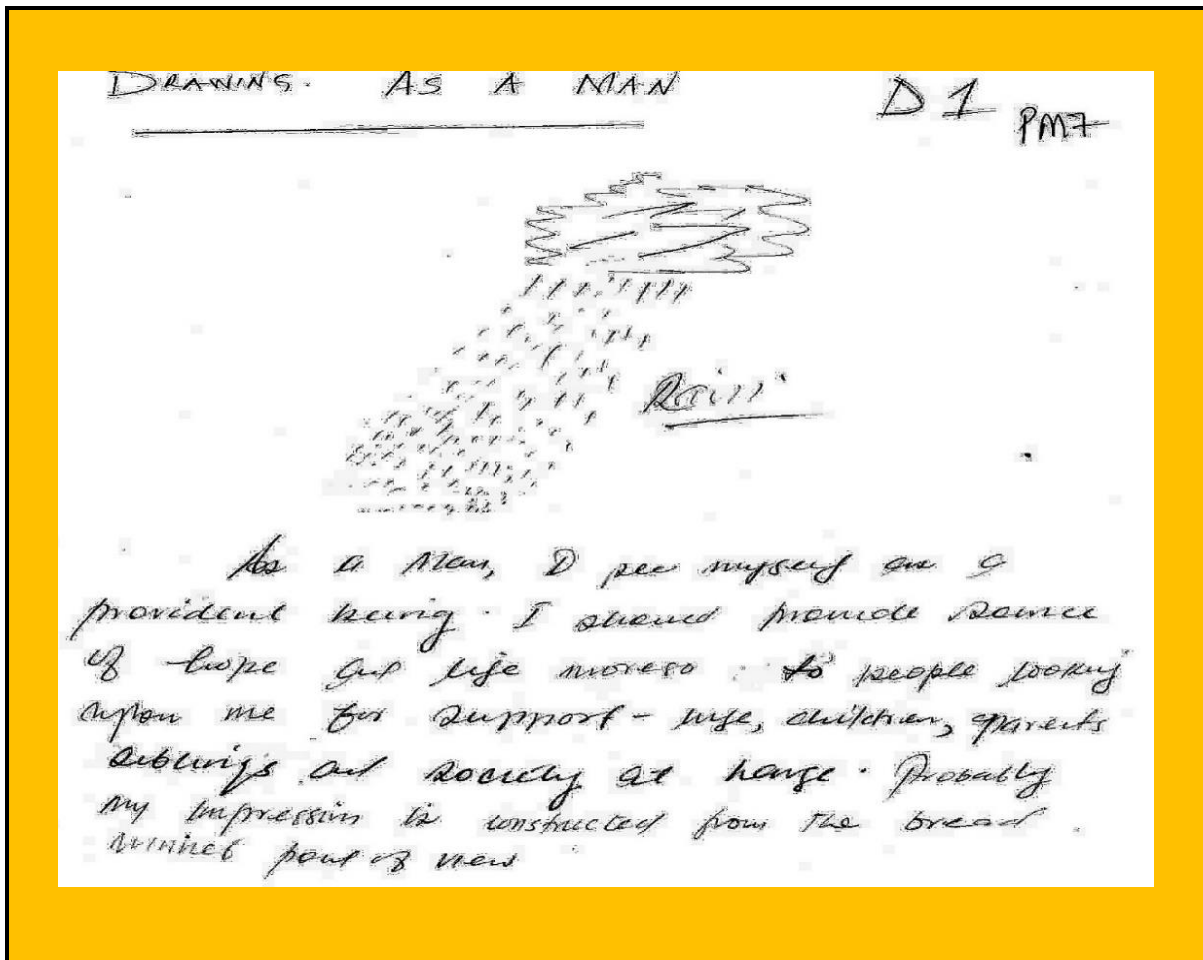 DRAWING. AS A MAN
D1 PM7
Rain
As a man, I see myself as a
provident being. I should provide source
of hope and life moreso to people looking
upon me for support - wife, children, parents
siblings and society at large. Probably
my impression is constructed from the bread
winner point of view